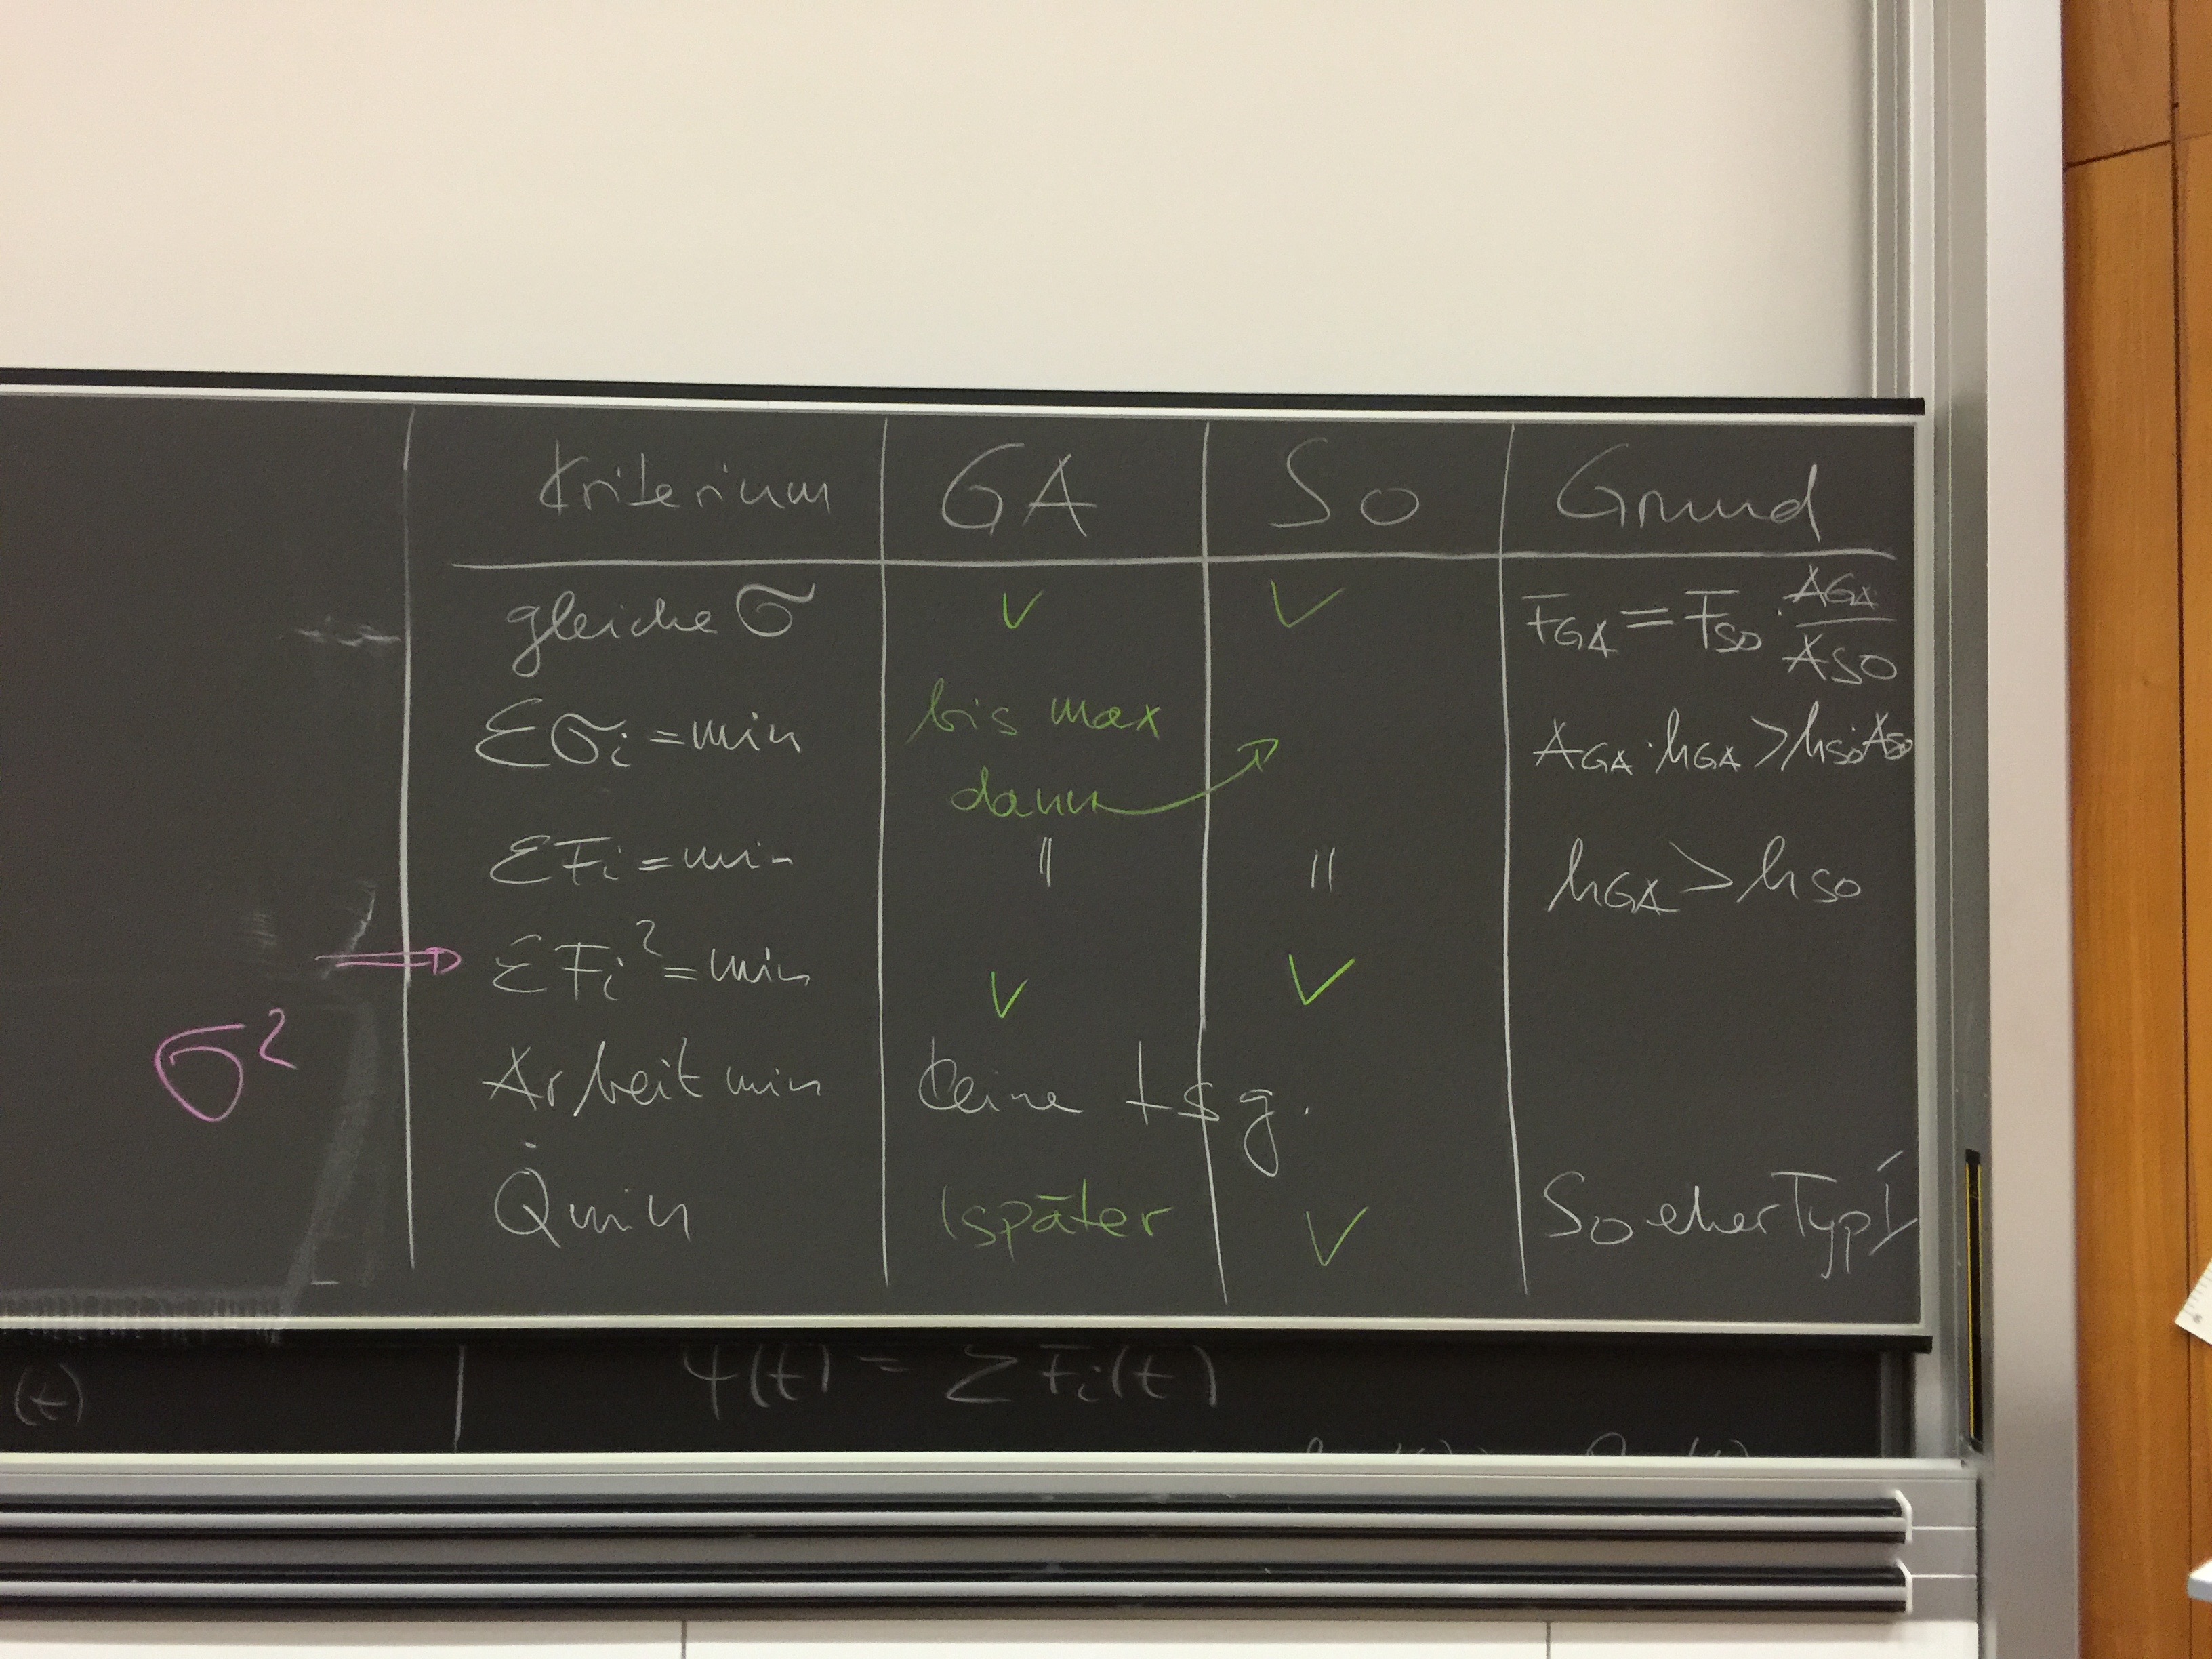 Kriterium GA So Grund
gleiche σ ✓ ✓ F_GA = F_SO · A_GA / A_SO
Σσi = min bis max dann → A_GA · h_GA > h_SO · A_SO
ΣFi = min || || h_GA > h_SO
⇒ ΣFi² = min ✓ ✓
σ²
Arbeit min keine Lsg.
Q̇ min (später ✓ So eher Typ I
(t) Ψ(t) = ΣFi(t)